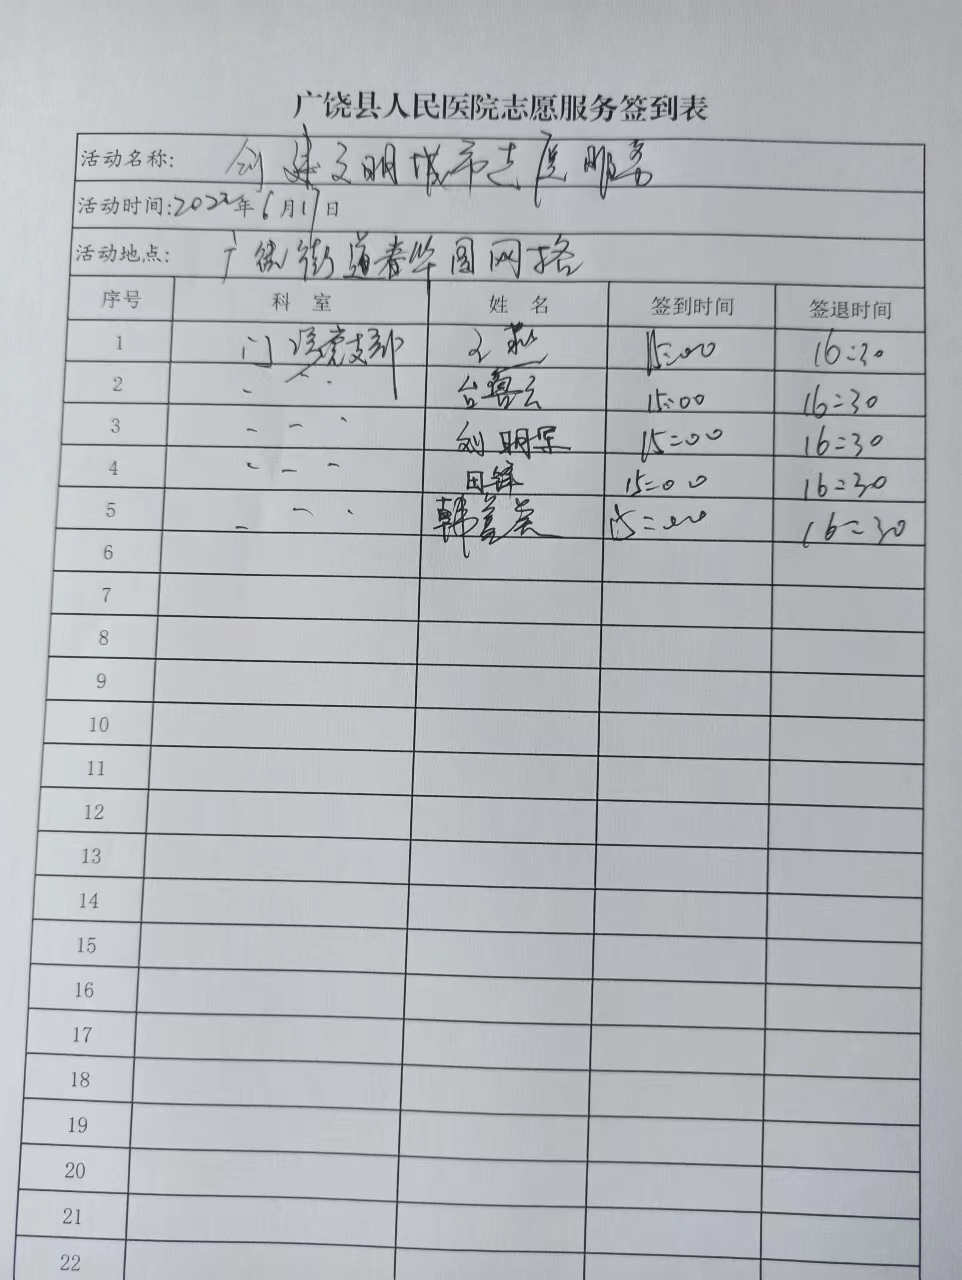 广饶县人民医院志愿服务签到表
活动名称: 创建文明城市志愿服务
活动时间:2022年6月17日
活动地点: 广饶街道春华园网格
序号 科 室 姓 名 签到时间 签退时间
1 门 支部 王燕 15:00 16:30
2 〃 台 云 15:00 16:30
3 〃 刘明军 15:00 16:30
4 〃 田锋 15:00 16:30
5 〃 韩 英 15:00 16:30
6
7
8
9
10
11
12
13
14
15
16
17
18
19
20
21
22